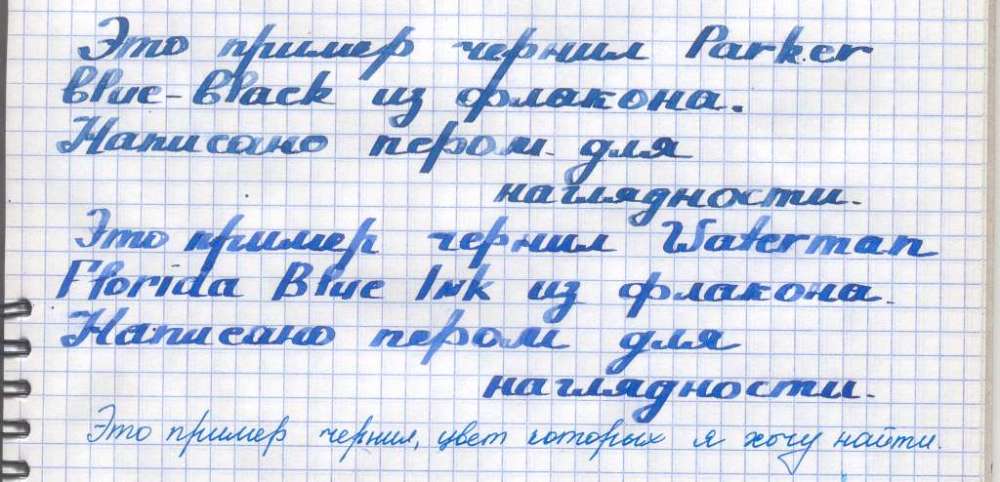 Это пример чернил Parker
blue-black из флакона.
Написано пером для
наглядности.
Это пример чернил Waterman
Florida Blue Ink из флакона.
Написано пером для
наглядности.
Это пример чернил, цвет которых я хочу найти.